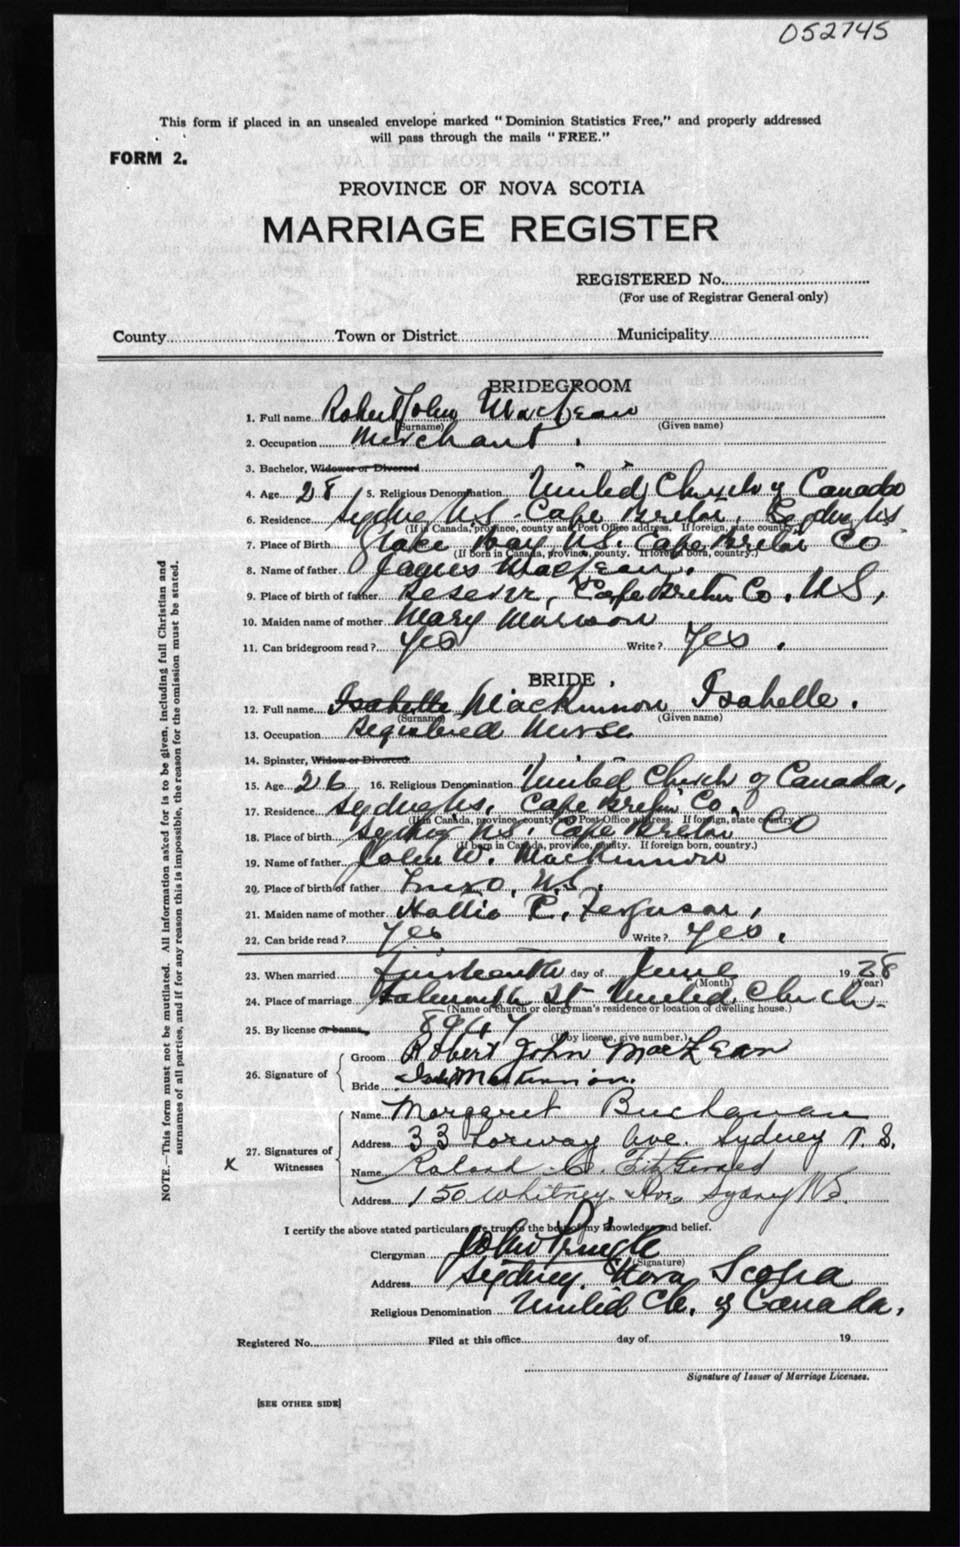 052745
This form if placed in an unsealed envelope marked "Dominion Statistics Free," and properly addressed
will pass through the mails "FREE."
FORM 2.
PROVINCE OF NOVA SCOTIA
MARRIAGE REGISTER
REGISTERED No.
(For use of Registrar General only)
County Town or District Municipality
BRIDEGROOM
1. Full name Robert John MacLean
(Surname) (Given name)
2. Occupation Merchant.
3. Bachelor, Widower or Divorced
4. Age 28 5. Religious Denomination United Church of Canada
6. Residence Sydney N.S. Cape Breton, Sydney NS
(If in Canada, province, county and Post Office address. If foreign, state country.)
7. Place of Birth Glace Bay N.S. Cape Breton Co
(If born in Canada, province, county. If foreign born, country.)
8. Name of father James MacLean.
9. Place of birth of father Reserve, Cape Breton Co. N.S,
10. Maiden name of mother Mary
11. Can bridegroom read? Yes Write? Yes.
BRIDE.
12. Full name Isabelle MacKinnon Isabelle.
(Surname) (Given name)
13. Occupation Registered Nurse
14. Spinster, Widow or Divorced
15. Age 26 16. Religious Denomination United Church of Canada,
17. Residence Sydney N.S. Cape Breton Co.
(If in Canada, province, county and Post Office address. If foreign, state country.)
18. Place of birth Sydney N.S. Cape Breton Co
(If born in Canada, province, county. If foreign born, country.)
19. Name of father John W. MacKinnon
20. Place of birth of father Truro, N.S.
21. Maiden name of mother Hattie Ferguson,
22. Can bride read? Yes Write? Yes.
23. When married day of June 1928
(Month) (Year)
24. Place of marriage Falmouth St United Church.
(Name of church or clergyman's residence or location of dwelling house.)
25. By license or banns 8947
(If by license, give number.)
26. Signature of
Groom Robert John MacLean
Bride MacKinnon.
27. Signatures of Witnesses
Name Margaret Buchanan
Address 33 Ave. Sydney N.S.
x
Name Roland C. FitzGerald
Address 150 Whitney Ave, Sydney N.S.
I certify the above stated particulars are true to the best of my knowledge and belief.
Clergyman John Pringle
(Signature)
Address Sydney, Nova Scotia
Religious Denomination United Ch. of Canada,
Registered No. Filed at this office day of 19
Signature of Issuer of Marriage Licenses.
[SEE OTHER SIDE]
NOTE.—This form must not be mutilated. All information asked for is to be given, including full Christian and
surnames of all parties, and if for any reason this is impossible, the reason for the omission must be stated.